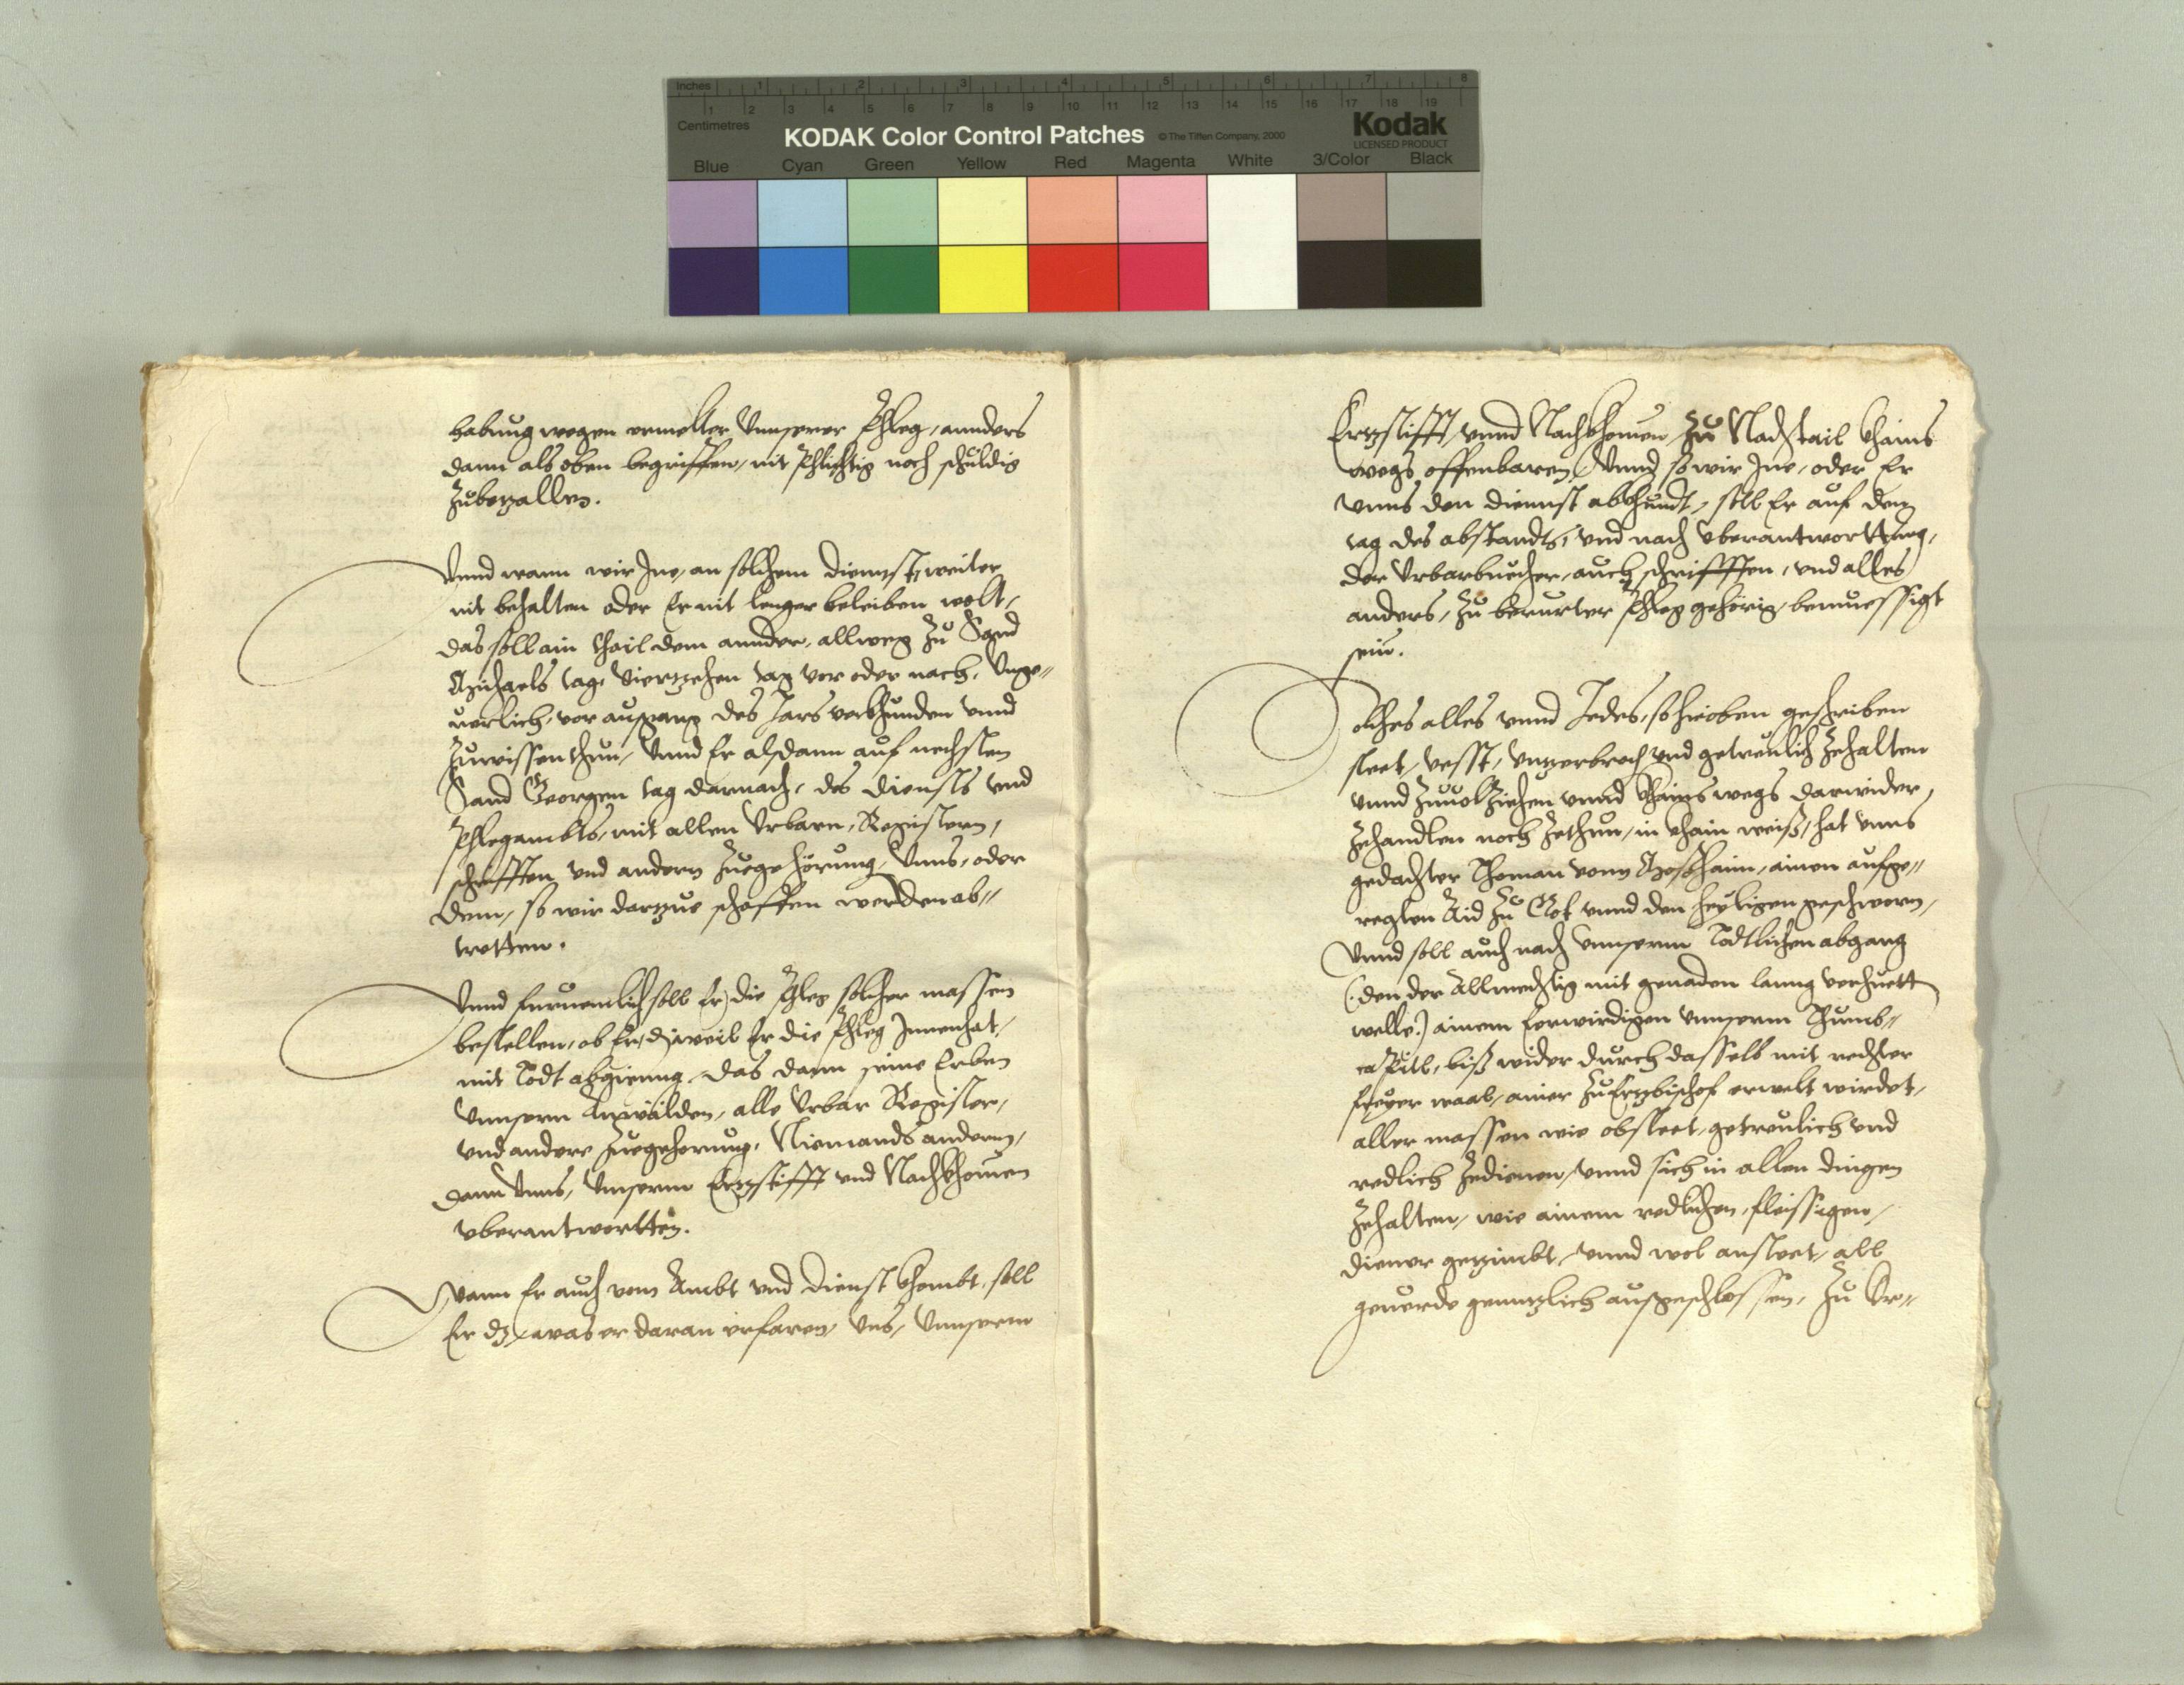 Inches 1 2 3 4 5 6 7 8
Centimetres 1 2 3 4 5 6 7 8 9 10 11 12 13 14 15 16 17 18 19
KODAK Color Control Patches © The Tiffen Company, 2000 Kodak
LICENSED PRODUCT
Blue Cyan Green Yellow Red Magenta White 3/Color Black
habung wegen ermelter Unnserer Phleg, annders
dann als oben begriffen, nit Phlichtig noch schuldig
zubezallen.
Unnd wann wir Ine, an solchem diennst, weiter
nit behalten oder Er nit lenger beleiben wolt,
das soll ain thail dem annder, allweg zu Sand
Michaels tag, Viertzehen tag vor oder nach, Unge„
uerlich, vor ausgang des Jars verkhunden unnd
zuwissen thun, Unnd Er alsdann auf nechsten
Sand Georgen tag darnach, des diensts und
Phlegambts, mit allen Urbarn, Registern,
schrifften und andern zuegehörung, Unns, oder
dem, so wir darzue schaffen werden ab„
tretten.
Unnd furnemlich soll Er, die Phleg solcher massen
bestellen, ob Er, dieweil Er die Phleg Innenhat,
mit Todt abgienng, das dann seine Erben
Unnsern Anwälden, alle Urbar Register,
und andere zuegehorung, Niemands anderm,
dann Unns, Unserm Ertzstifft und Nachkhomen
uberantwortten.
Wann Er auch vom Ambt und dienst khombt, soll
Er dz, was er daran erfaren, Uns, Unnserm
Ertzstifft, unnd Nachkhomen zu Nachtail khains
wegs offenbaren, Unnd so wir Ine, oder Er
Unns den diennst abkhundt, soll Er auf den
tag des abstandts, und nach uberantworttung,
der Urbarbuecher, auch schrifften, und alles
anders, zu berurter Phleg gehörig, bemuessigt
sein.
Solches alles unnd Jedes, so hieoben geschriben
steet, vesst, unzerbroch und getreulich zehalten
unnd zuuolziehen unnd khains wegs darwider,
zehandlen noch zethun, in khain weiß, hat unns
gedachter Thoman vonn Mosshaim, ainen aufge„
regten Aid zu Got unnd den heyligen geschworn,
Unnd soll auch nach unnserm Todtlichen abgang
(den der Allmechtig mit genaden lanng verhuett
welle.) ainem Eerwirdigen unnserm Thumb„
capitl, biß wider durch dasselb mit rechter
freyer waal, ainer zu Ertzbischof erwelt wirdet,
aller massen wie obsteet, getreulich und
redlich zedienen, unnd sich in allen dingen
zehalten, wie ainem redlichen, fleissigen,
diener gezimbt, unnd wol ansteet, all
geuerde genntzlich ausgeschlossen, Zu Ur„